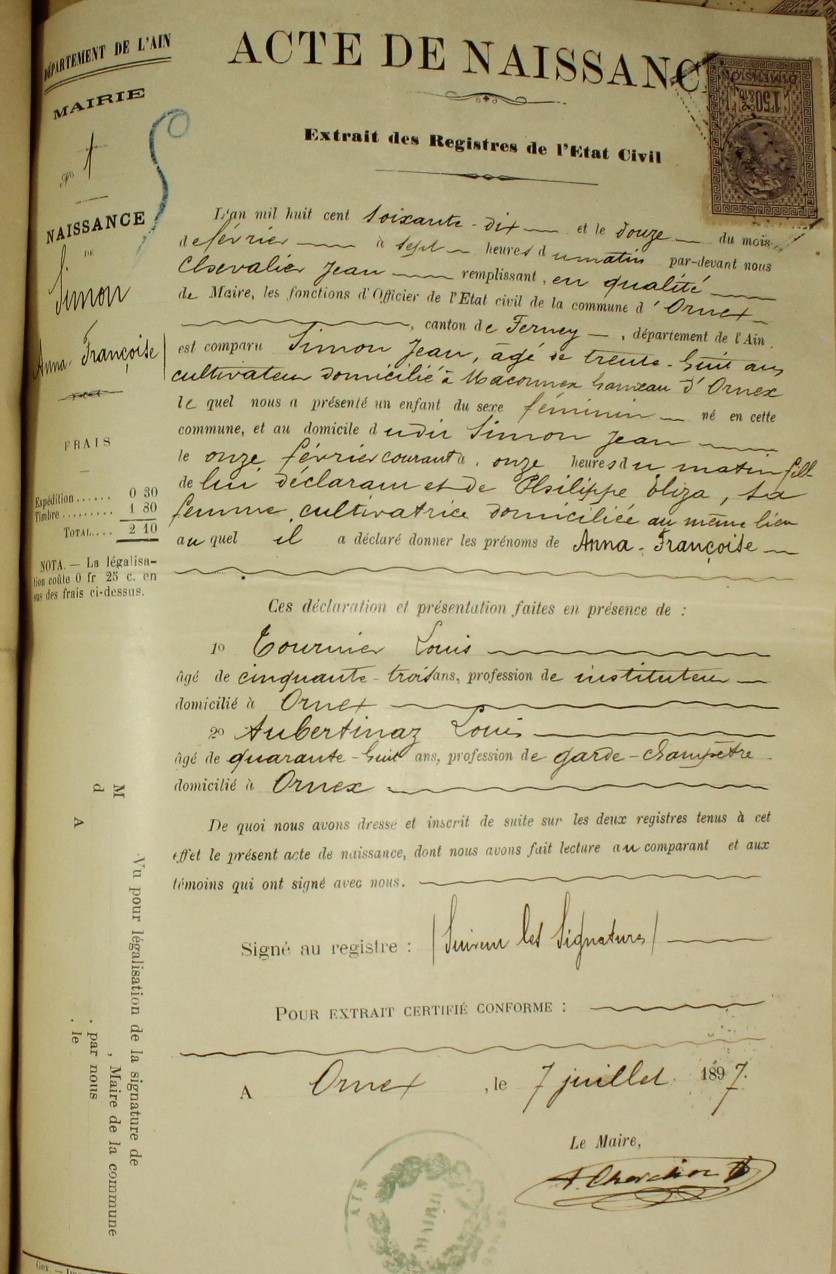 DÉPARTEMENT DE L'AIN
MAIRIE
No 1
NAISSANCE
DE
Simon
Anna-Françoise
FRAIS
Expédition...... 0 30
Timbre......... 1 80
TOTAL.... 2 10
NOTA. — La légalisa-
tion coûte 0 fr. 25 c. en
sus des frais ci-dessus.
ACTE DE NAISSANC
DIMENSION
1f50c
Extrait des Registres de l'Etat Civil
L'an mil huit cent soixante-dix et le douze du mois
de février à sept heures du matin par-devant nous
Chevalier Jean remplissant, en qualité
de Maire, les fonctions d'Officier de l'Etat civil de la commune d'Ornex
, canton de Ferney, département de l'Ain
est comparu Simon Jean, âgé de trente-huit ans
cultivateur domicilié à Maconnex hameau d'Ornex
lequel nous a présenté un enfant du sexe féminin né en cette
commune, et au domicile dudit Simon Jean
le onze février courant à onze heures du matin fille
de lui déclarant et de Philippe Eliza, sa
femme, cultivatrice domiciliée au même lieu
auquel il a déclaré donner les prénoms de Anna-Françoise
Ces déclaration et présentation faites en présence de :
1o Tournier Louis
âgé de cinquante-trois ans, profession de instituteur
domicilié à Ornex
2o Aubertinaz Louis
âgé de quarante-huit ans, profession de garde-champêtre
domicilié à Ornex
De quoi nous avons dressé et inscrit de suite sur les deux registres tenus à cet
effet le présent acte de naissance, dont nous avons fait lecture au comparant et aux
témoins qui ont signé avec nous.
Signé au registre : (Suivent les Signatures)
POUR EXTRAIT CERTIFIÉ CONFORME :
A Ornex, le 7 juillet 1897
Le Maire,
AIN
MAIRIE
Vu pour légalisation de la signature de
M , Maire de la commune
d , par nous
A , le
Gex. —